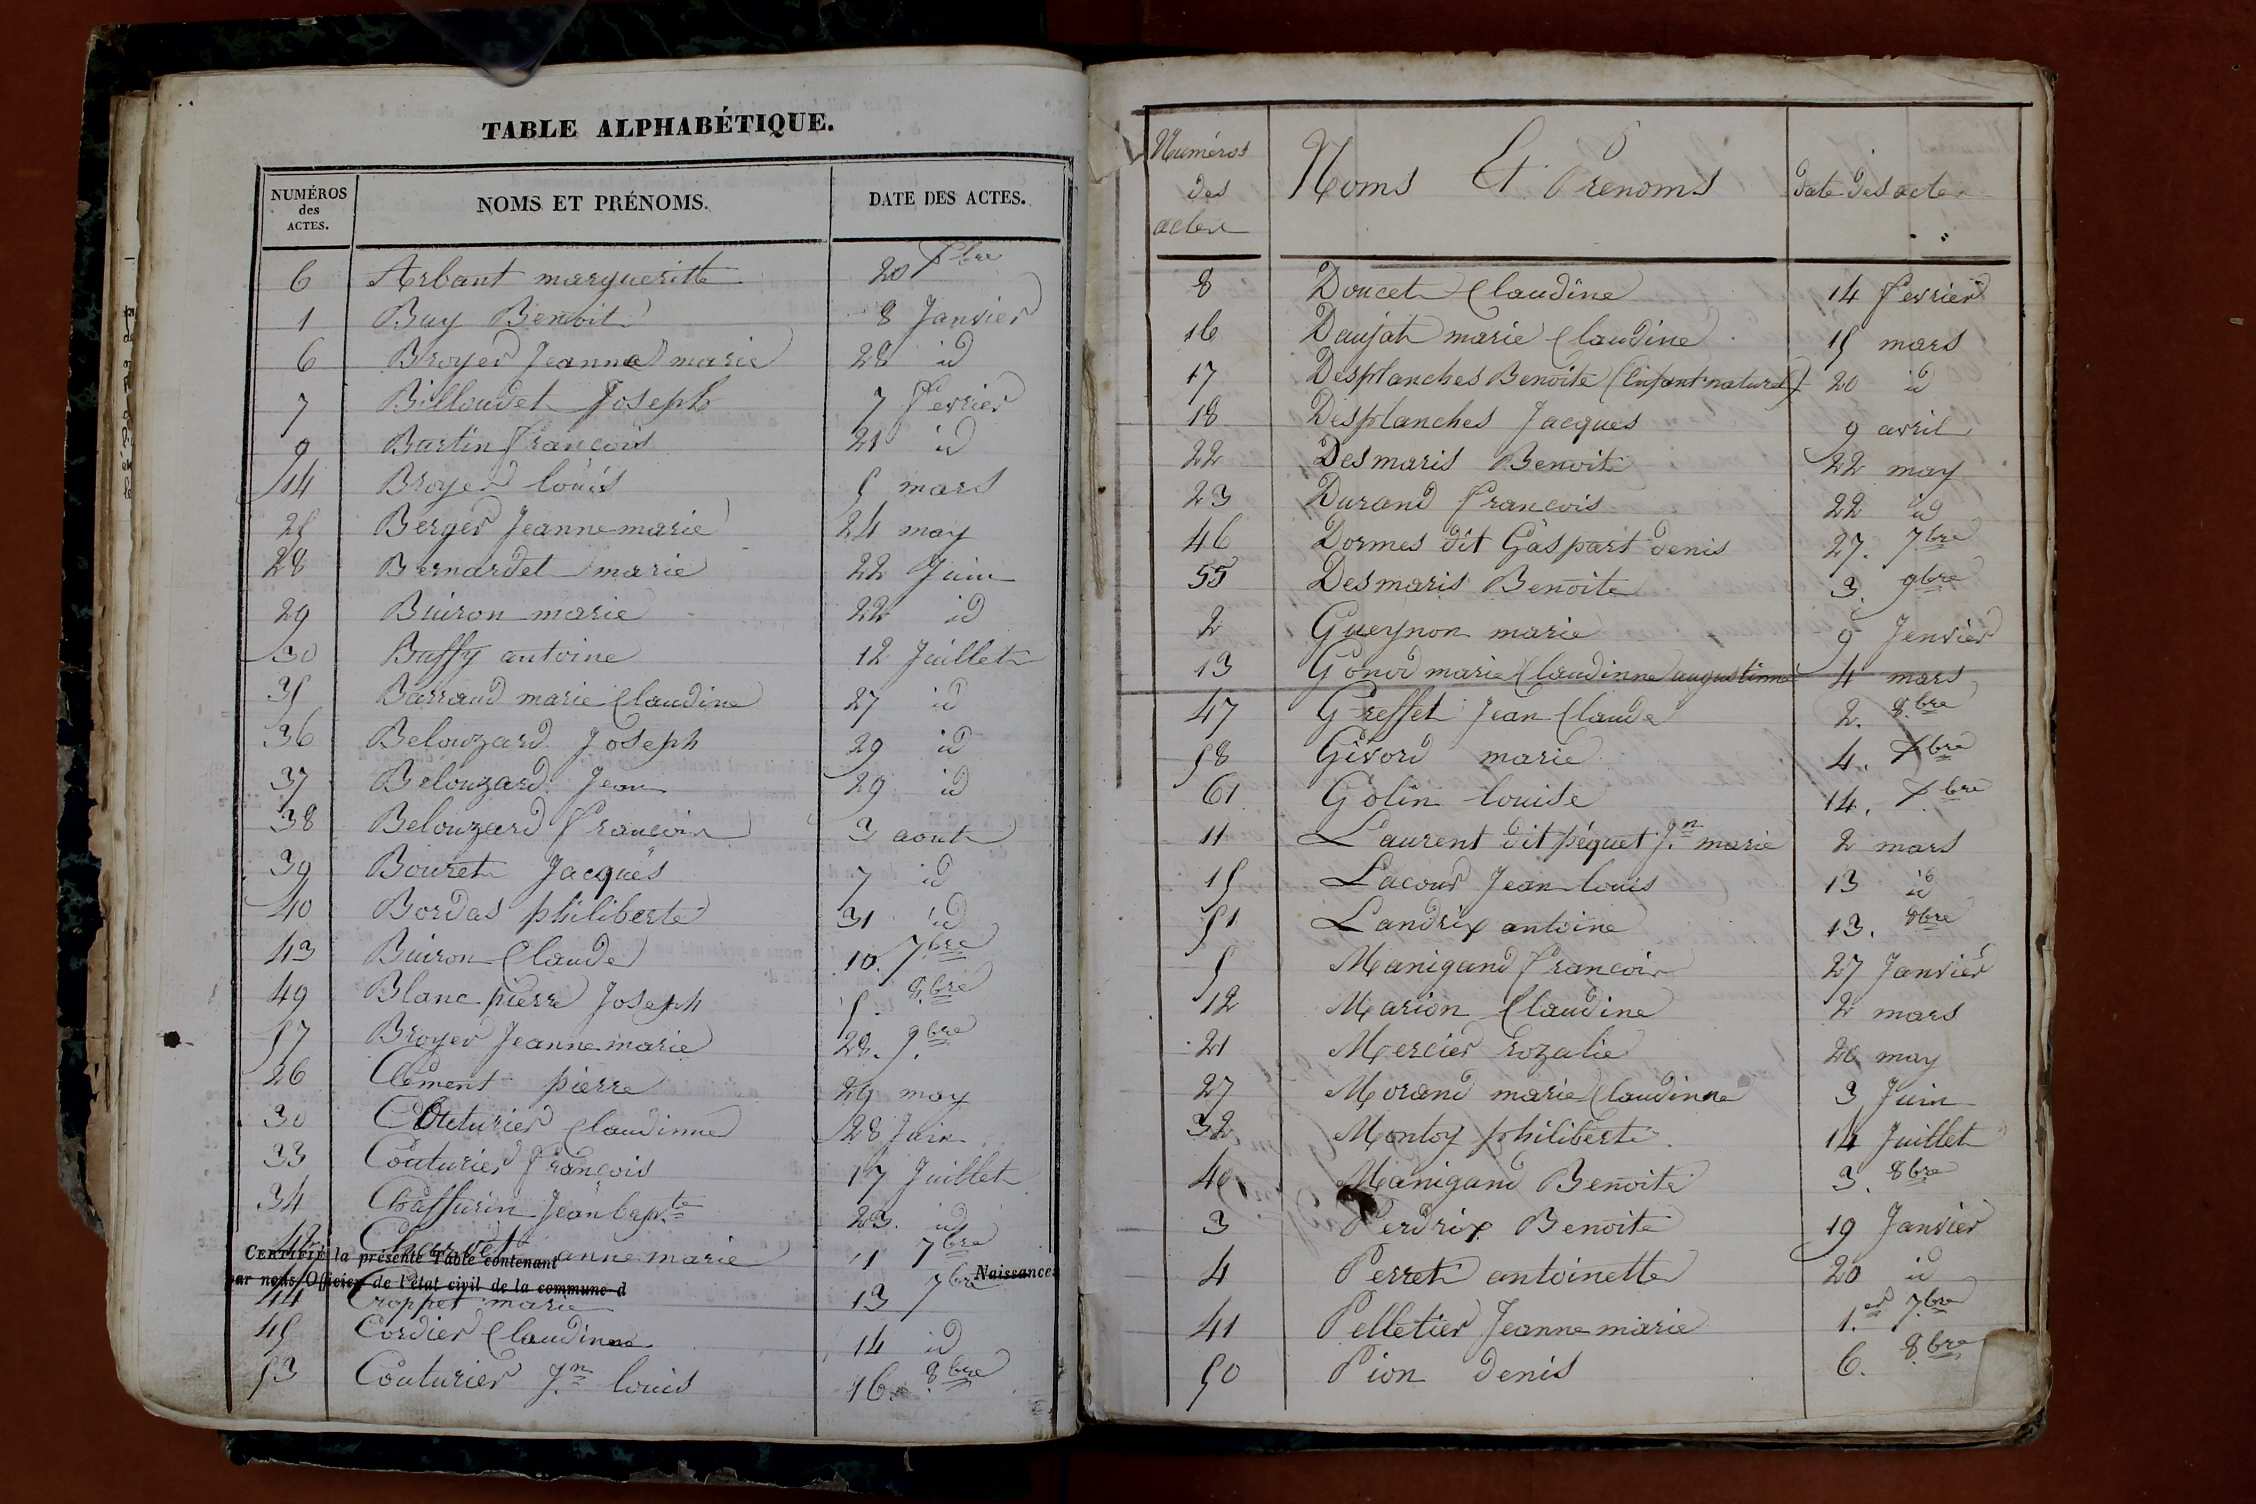 TABLE ALPHABÉTIQUE.
NUMÉROS des ACTES. NOMS ET PRÉNOMS. DATE DES ACTES.
6 Arbant margueritte 20 Xbre
1 Buy Benoit 8 Janvier
6 Broyer Jeanne marie 28 id
7 Billoudet Joseph 7 fevrier
9 Burtin françois 21 id
14 Broyer louis 5 mars
25 Berger Jeanne marie 24 may
28 Bernardet marie 22 Juin
29 Buiron marie 22 id
30 Buffy antoine 12 Juillet
35 Barraud marie Claudine 27 id
36 Belouzard Joseph 29 id
37 Belouzard Jean 29 id
38 Belouzard françois 3 aout
39 Bouret Jacques 7 id
40 Bordas philiberte 31 id
43 Buiron Claude 10. 7bre
49 Blanc pierre Joseph 5. 8bre
57 Broyer Jeanne marie 28. 9.bre
26 Clement pierre 29 may
30 Couturier Claudinne 28 Juin
33 Couturier françois 17 Juillet
34 Chaffurin Jean bapte 23. id
42 Charvet anne marie 11 7bre
CERTIFIÉ la présente Table contenant Naissances
par nous Officier de l'état civil de la commune d
44 Croppet marie 13 7bre
45 Cordier Claudinne 14 id
53 Couturier Jn louis 16. 8bre
Numéros des actes Noms Et Prenoms date des actes
8 Doucet Claudine 14 fevrier
16 Daujat marie Claudine 15 mars
17 Desplanches Benoite (Enfant naturel) 20 id
18 Desplanches Jacques 9 avril
22 Desmaris Benoit 22 may
23 Durand francois 22 id
46 Dormes dit Gaspart denis 27. 7bre
55 Desmaris Benoite 3. 9bre
2 Gueynon marie 9 Jenvier
13 Gonod marie Claudinne augustinne 4 mars
47 Greffet Jean Claude 2. 8bre
58 Givord marie 4. Xbre
61 Golin louise 14. Xbre
11 Laurent dit péquet Jn marie 2 mars
15 Lacour Jean louis 13 id
51 Landrix antoine 13. 8bre
5 Manigand francois 27 Janvier
12 Marion Claudine 2 mars
21 Mercier rozalie 20 may
27 Morand marie Claudinne 3 Juin
32 Montoy philiberte 14 Juillet
Manigand Benoite 3. 8bre
3 Perdrix Benoite 19 Janvier
4 Perret antoinette 20 id
41 Pelletier Jeanne marie 1.er 7bre
50 Pion denis 6. 8bre